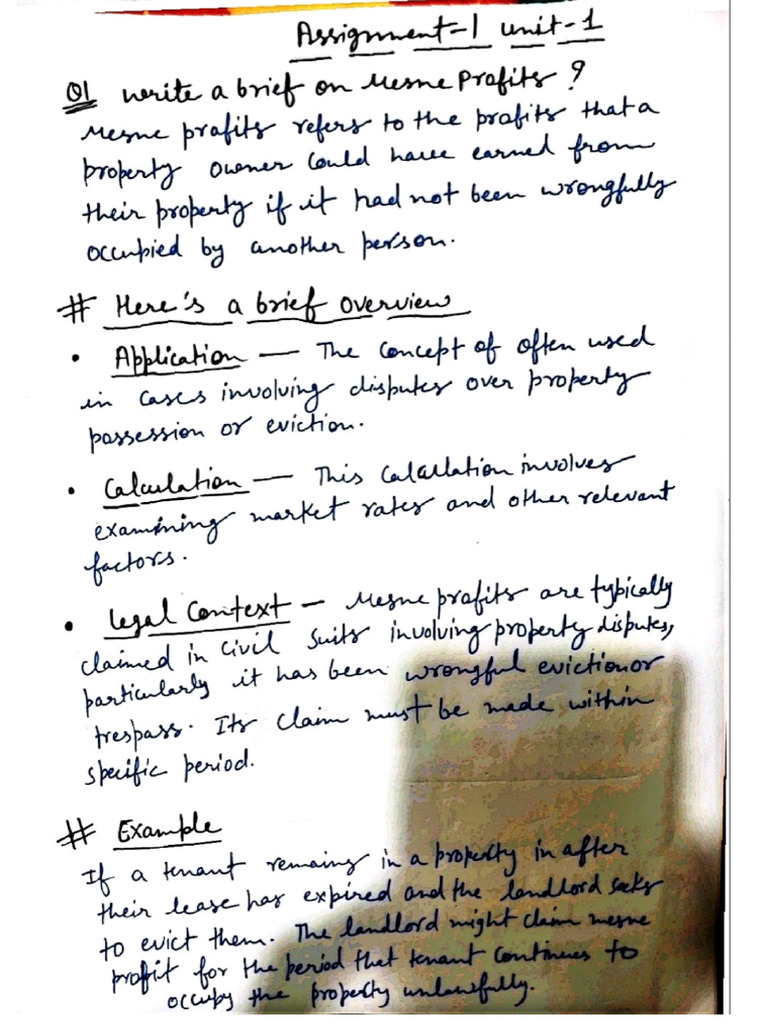 Assignment-1 unit-1
Q1 write a brief on Mesne Profits ?
Mesne profits refers to the profits that a
property owner could have earned from
their property if it had not been wrongfully
occupied by another person.
# Here's a brief overview
• Application — The concept of often used
in cases involving disputes over property
possession or eviction.
• Calculation — This calculation involves
examining market rates and other relevant
factors.
• Legal Context — Mesne profits are typically
claimed in civil suits involving property disputes,
particularly it has been wrongful eviction or
trespass. Its claim must be made within
specific period.
# Example
If a tenant remaining in a property in after
their lease has expired and the landlord seeks
to evict them. The landlord might claim mesne
profit for the period that tenant continues to
occupy the property unlawfully.